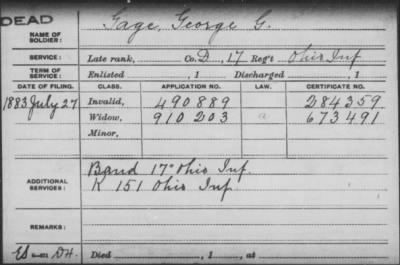 DEAD
NAME OF SOLDIER: Gage, George G.
SERVICE: Late rank, Co. D, 17 Reg't Ohio Inf
TERM OF SERVICE: Enlisted , 1 Discharged , 1
DATE OF FILING. CLASS. APPLICATION NO. LAW. CERTIFICATE NO.
1883 July 27 Invalid, 490889 284359
Widow, 910203 a 673491
Minor,
ADDITIONAL SERVICES: Band 17" Ohio Inf.
K 151 Ohio Inf.
REMARKS:
Died , 1 , at